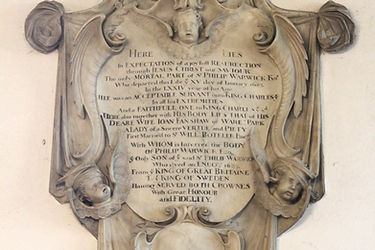 HERE LIES
In EXPECTATION of a joyfull RESURRECTION
through JESUS CHRIST our SAVIOUR
The only MORTAL PART of Sr PHILIP WARWICK Knt
Who departed this Life ye XV day of January
In the LXXIV year of his Age
HEE was an ACCEPTABLE SERVANT to King CHARLES ye
In all his EXTREMITIES
And a FAITHFULL ONE to King CHARLES ye
HERE also together with HIS BODY LIES that OF HIS
DEARE WIFE JOAN FANSHAW of WARE PARK
A LADY of a Sincere VERTUE and PIETY
First Married to Sr WILL BOTELER
With WHOM is Interred the BODY
OF PHILIP WARWICK
ye Only SON of ye said Sr PHILIP WARWICK
Who dyed an ENVOY
From ye KING OF GREAT BRITAINE
To ye KING OF SWEDEN
Having SERVED BOTH CROWNES
With Great HONOUR
and FIDELITY.